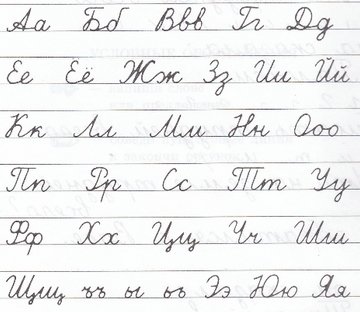 Аа Бб Ввв Гг Дд
Ее Её Жж Зз Ии Йй
Кк Лл Мм Нн Ооо
Пп Рр Сс Тт Уу
Фф Хх Цц Чч Шш
Щщ ъъ ы ьь Ээ Юю Яя